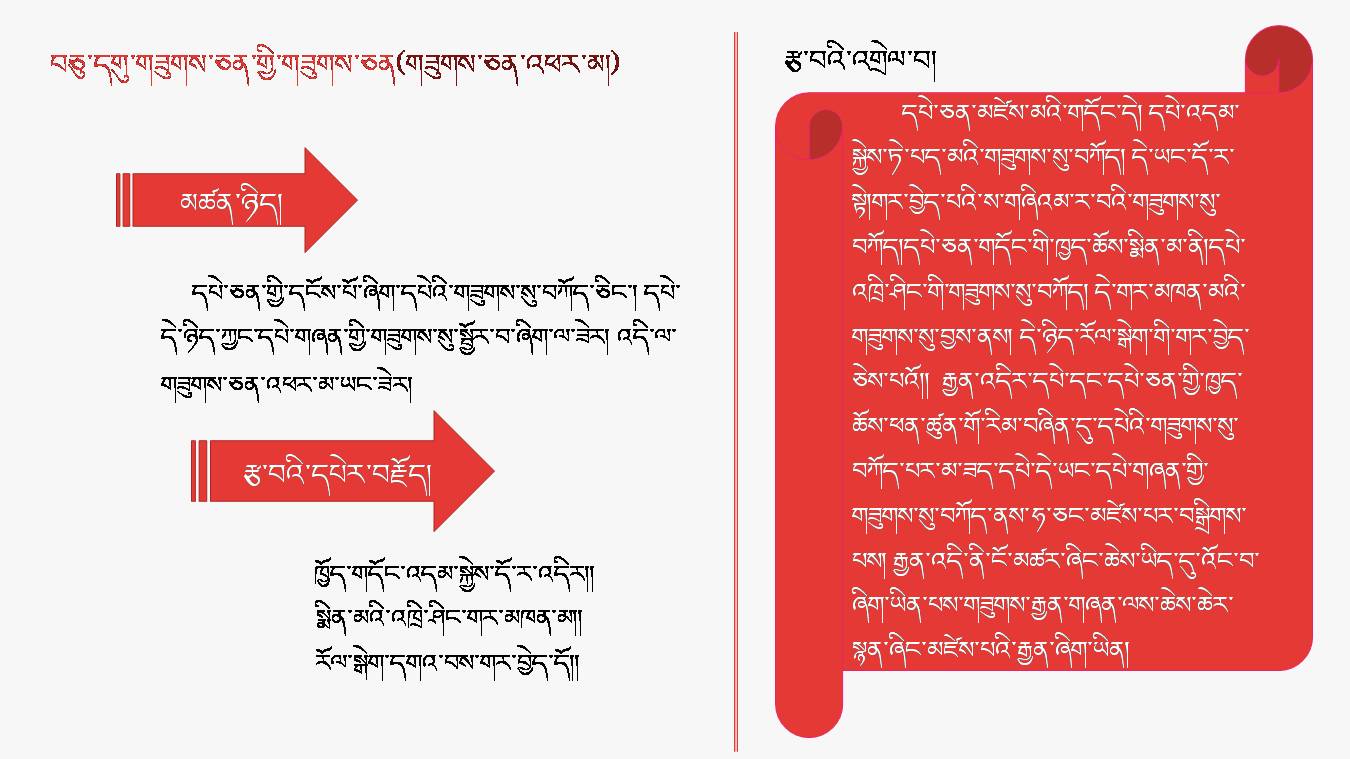 བཅུ་དགུ་གཟུགས་ཅན་གྱི་གཟུགས་ཅན(གཟུགས་ཅན་འཕར་མ།)
མཚན་ཉིད།
དཔེ་ཅན་གྱི་དངོས་པོ་ཞིག་དཔེའི་གཟུགས་སུ་བཀོད་ཅིང་། དཔེ་
དེ་ཉིད་ཀྱང་དཔེ་གཞན་གྱི་གཟུགས་སུ་སྦྱོར་བ་ཞིག་ལ་ཟེར། འདི་ལ་
གཟུགས་ཅན་འཕར་མ་ཡང་ཟེར།
རྩ་བའི་དཔེར་བརྗོད།
ཁྱོད་གདོང་འདམ་སྐྱེས་དོ་ར་འདིར།།
སྨིན་མའི་འཁྲི་ཤིང་གར་མཁན་མ།།
རོལ་སྒེག་དགའ་བས་གར་བྱེད་དོ།།
རྩ་བའི་འགྲེལ་བ།
དཔེ་ཅན་མཛེས་མའི་གདོང་དེ། དཔེ་འདམ་
སྐྱེས་ཏེ་པད་མའི་གཟུགས་སུ་བཀོད། དེ་ཡང་དོ་ར་
སྟེ།གར་བྱེད་པའི་ས་གཞིའམ་ར་བའི་གཟུགས་སུ་
བཀོད།དཔེ་ཅན་གདོང་གི་ཁྱད་ཆོས་སྨིན་མ་ནི།དཔེ་
འཁྲི་ཤིང་གི་གཟུགས་སུ་བཀོད། དེ་གར་མཁན་མའི་
གཟུགས་སུ་བྱས་ནས། དེ་ཉིད་རོལ་སྒེག་གི་གར་བྱེད་
ཅེས་པའོ།། རྒྱན་འདིར་དཔེ་དང་དཔེ་ཅན་གྱི་ཁྱད་
ཆོས་ཕན་ཚུན་གོ་རིམ་བཞིན་དུ་དཔེའི་གཟུགས་སུ་
བཀོད་པར་མ་ཟད་དཔེ་དེ་ཡང་དཔེ་གཞན་གྱི་
གཟུགས་སུ་བཀོད་ནས་ཧ་ཅང་མཛེས་པར་བསྒྲིགས་
པས། རྒྱན་འདི་ནི་ངོ་མཚར་ཞིང་ཆེས་ཡིད་དུ་འོང་བ་
ཞིག་ཡིན་པས་གཟུགས་རྒྱན་གཞན་ལས་ཆེས་ཆེར་
སྙན་ཞིང་མཛེས་པའི་རྒྱན་ཞིག་ཡིན།